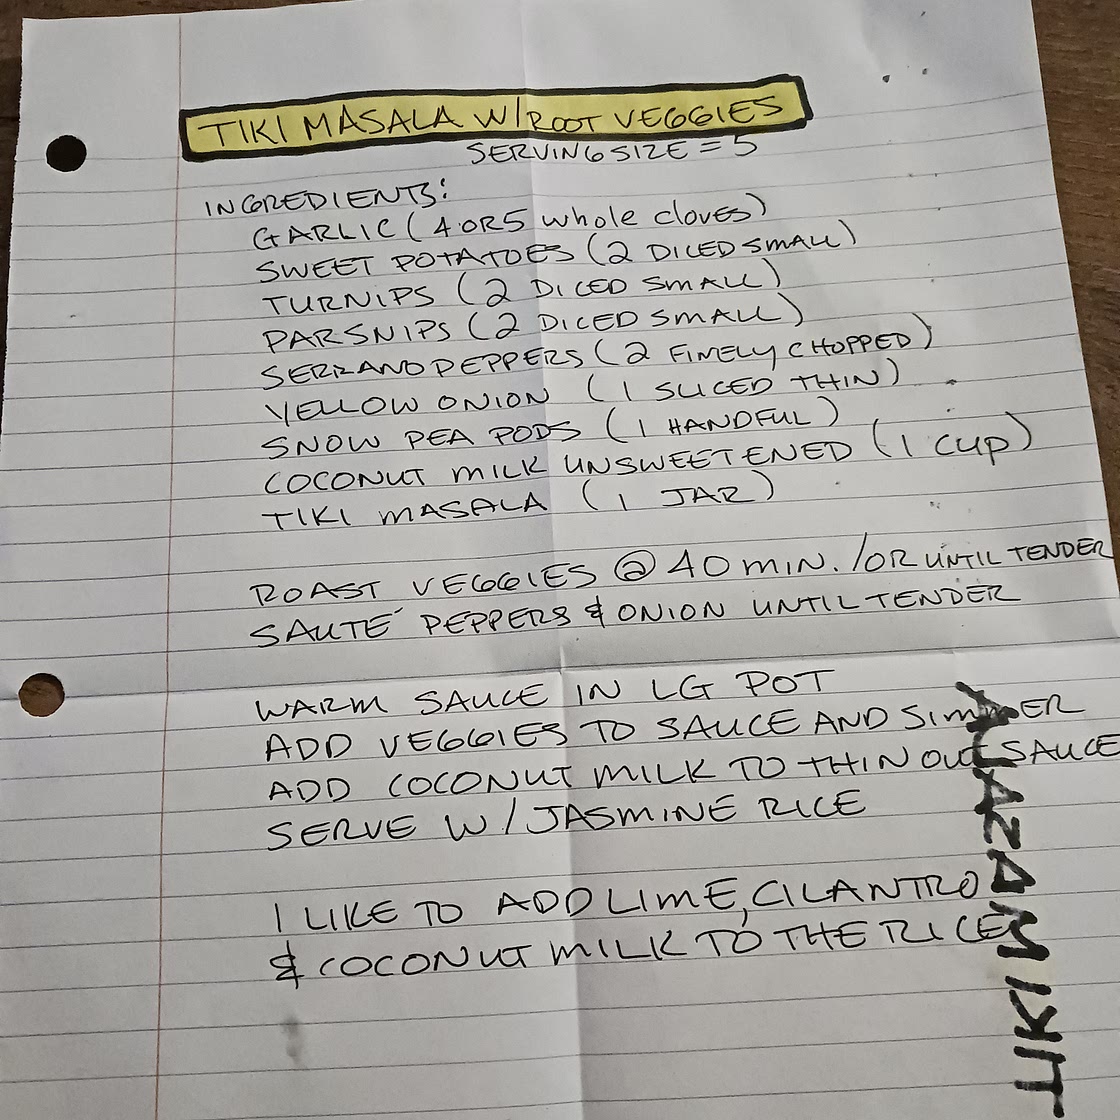 TIKI MASALA W/ROOT VEGGIES
SERVING SIZE = 5
INGREDIENTS:
GARLIC (4 OR 5 whole cloves)
SWEET POTATOES (2 DICED SMALL)
TURNIPS (2 DICED SMALL)
PARSNIPS (2 DICED SMALL)
SERRANO PEPPERS (2 FINELY CHOPPED)
YELLOW ONION (1 SLICED THIN)
SNOW PEA PODS (1 HANDFUL)
COCONUT MILK UNSWEETENED (1 CUP)
TIKI MASALA (1 JAR)
ROAST VEGGIES @ 40 MIN. /OR UNTIL TENDER
SAUTÉ PEPPERS & ONION UNTIL TENDER
WARM SAUCE IN LG POT
ADD VEGGIES TO SAUCE AND SIMMER
ADD COCONUT MILK TO THIN OUT SAUCE
SERVE W/JASMINE RICE
I LIKE TO ADD LIME, CILANTRO
& COCONUT MILK TO THE RICE
TIKI MASALA